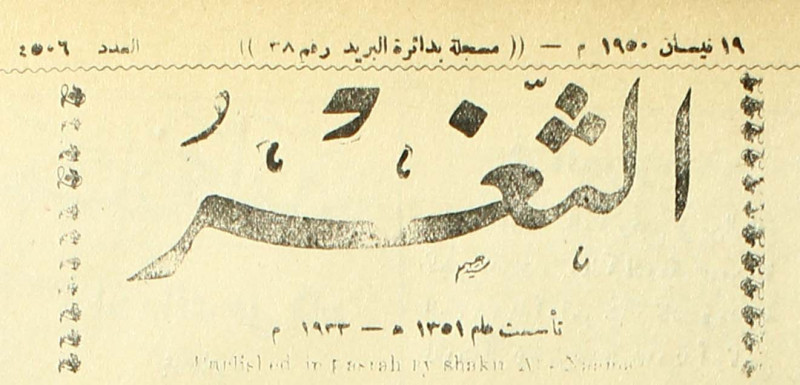 ١٩ نيسان ١٩٥٠ م — (( مسجلة بدائرة البريد رقم ٣٨ )) العدد ٤٥٠٦
الثَّغْرُ
تأسست عام ١٣٥١ ه — ١٩٣٣ م
Published in Basrah by Shakir